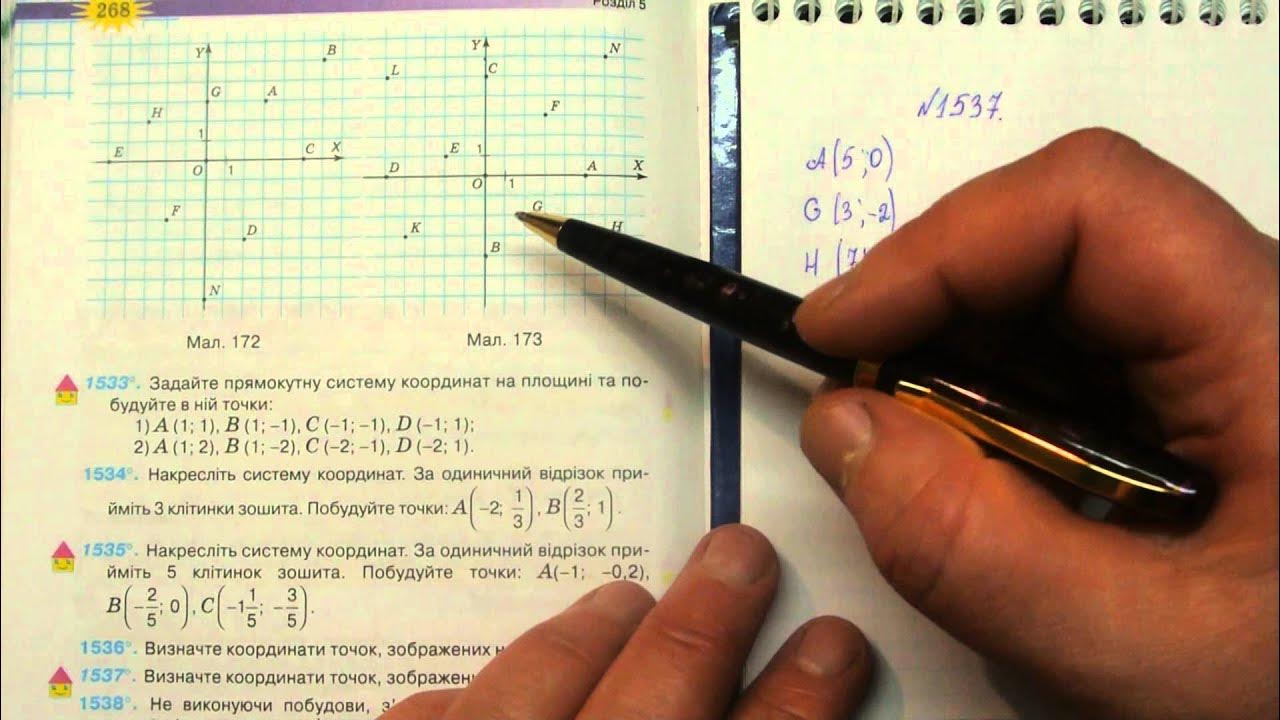 268
Розділ 5
Y
B
G
A
H
1
E
C
X
O
1
F
D
N
Мал. 172
Y
N
C
L
F
E
1
X
D
O
1
A
G
K
H
B
Мал. 173
1533°. Задайте прямокутну систему координат на площині та по-
будуйте в ній точки:
1) A (1; 1), B (1; −1), C (−1; −1), D (−1; 1);
2) A (1; 2), B (1; −2), C (−2; −1), D (−2; 1).
1534°. Накресліть систему координат. За одиничний відрізок при-
йміть 3 клітинки зошита. Побудуйте точки: A(−2; 1/3), B(2/3; 1).
1535°. Накресліть систему координат. За одиничний відрізок при-
йміть 5 клітинок зошита. Побудуйте точки: A(−1; −0,2),
B(−2/5; 0), C(−1 1/5; −3/5).
1536°. Визначте координати точок, зображених н
1537°. Визначте координати точок, зображен
1538°. Не виконуючи побудови, з'
№1537.
A(5;0)
G(3;-2)
H(7;